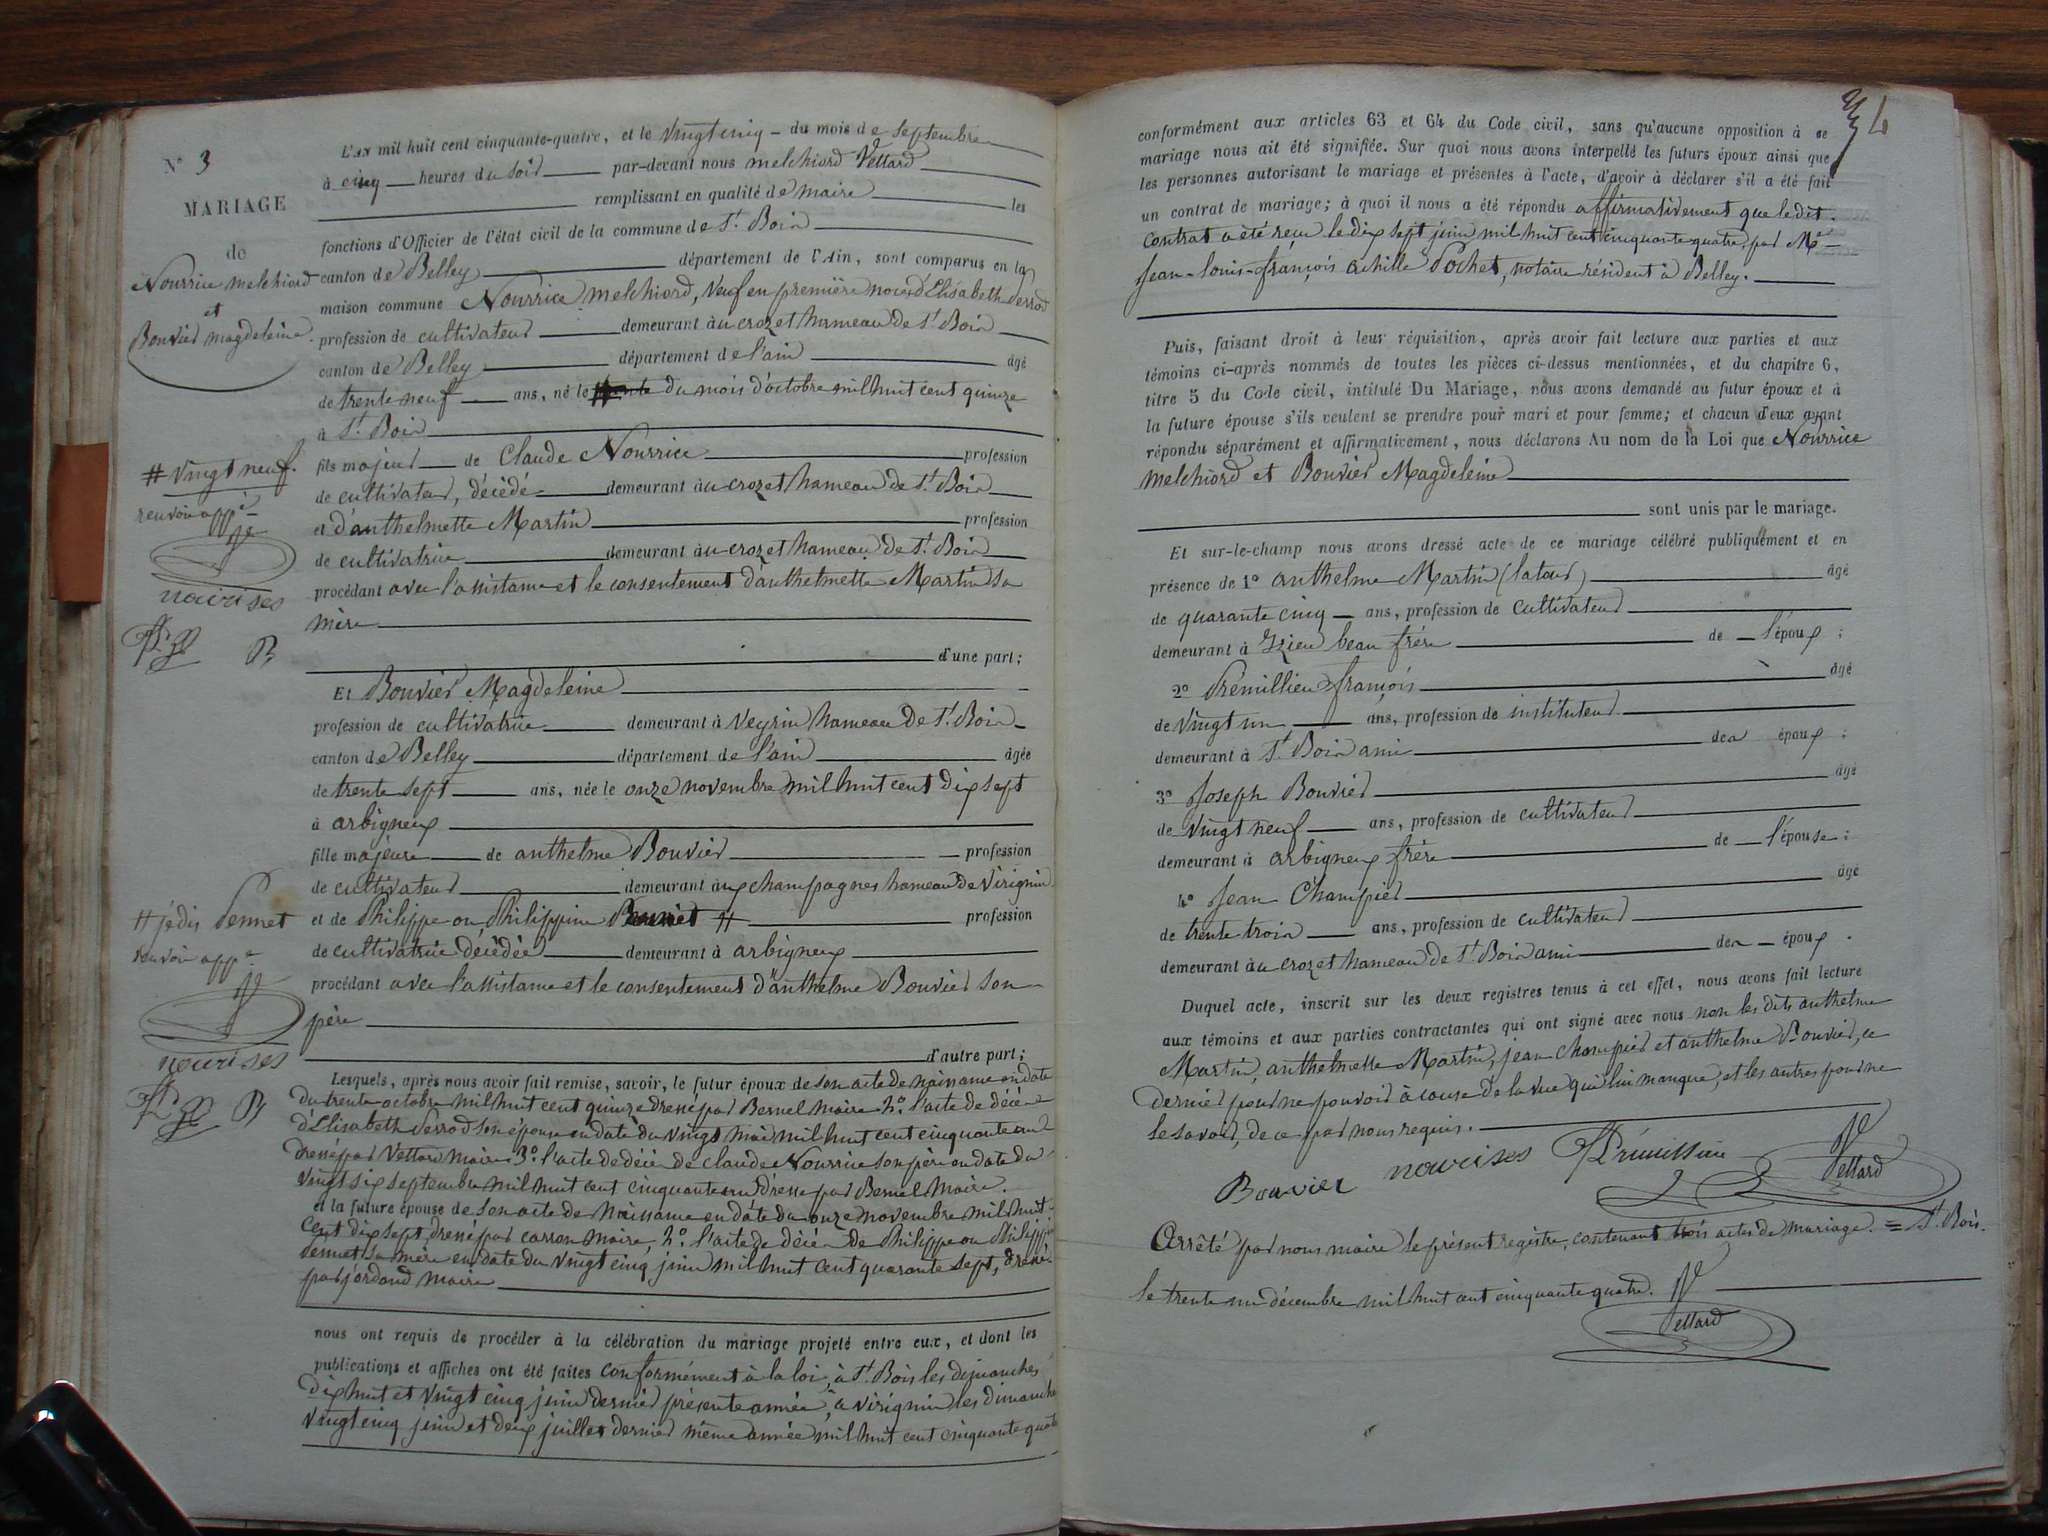 N° 3
MARIAGE
de
Nourrice melchiord
et
Bouvier magdeleine.
L'AN mil huit cent cinquante-quatre, et le vingt cinq du mois de septembre
à cinq heures du soir par-devant nous melchiord Vettard
remplissant en qualité de maire les
fonctions d'Officier de l'état civil de la commune de St. Bois
canton de Belley département de l'Ain, sont comparus en la
maison commune Nourrice melchiord, veuf en première noces d'Elisabeth Verrod
profession de cultivateur demeurant à u crozet hameau de St. Bois
canton de Belley département de l'ain âgé
de trente neuf ans, né le # du mois d'octobre mil huit cent quinze
à St. Bois
# vingt neuf.
renvoi appé
nourises
fils majeur de Claude Nourrice profession
de cultivateur, décédé demeurant à u crozet hameau de St. Bois
et d'anthelmette Martin profession
de cultivatrice demeurant à u crozet hameau de St. Bois
procédant avec l'assistance et le consentement d'anthelmette Martin sa
mère
d'une part;
Et Bouvier Magdeleine
profession de cultivatrice demeurant à Veyrin hameau de St. Bois
canton de Belley département de l'ain âgée
de trente sept ans, née le onze novembre mil huit cent dix sept
à arbignieux
fille majeure de anthelme Bouvier profession
de cultivateur demeurant à ux champagnes hameau de Virignin
# je dis Pennet
renvoi appé
nourises
et de Philippe ou Philippine # profession
de cultivatrice décédée demeurant à arbignieux
procédant avec l'assistance et le consentement d'anthelme Bouvier son
père
d'autre part;
Lesquels, après nous avoir fait remise, savoir, le futur époux de son acte de naissance en date
du trente octobre mil huit cent quinze dressé par Bernel maire 2°. l'acte de décès
d'Elisabeth Verrod son épouse en date du vingt mai mil huit cent cinquante un
dressé par Vettard maire 3°. l'acte de décès de claude Nourrice son père en date du
vingt six septembre mil huit cent cinquante un dressé par Bernel Maire.
et la future épouse de son acte de Naissance en date du onze novembre mil huit
cent dix sept, dressé par carron maire, 2°. l'acte de décès de Philippe ou Philippine
Pennet sa mère en date du vingt cinq juin mil huit cent quarante sept, dressé
par jordand maire
nous ont requis de procéder à la célébration du mariage projeté entre eux, et dont les
publications et affiches ont été faites conformément à la loi, à St. Bois les dimanches
dix huit et vingt cinq juin dernier présente année, à virignin les dimanches
vingt cinq juin et deux juillet dernier même année mil huit cent cinquante quatre
conformément aux articles 63 et 64 du Code civil, sans qu'aucune opposition à ce
mariage nous ait été signifiée. Sur quoi nous avons interpellé les futurs époux ainsi que
les personnes autorisant le mariage et présentes à l'acte, d'avoir à déclarer s'il a été fait
un contrat de mariage; à quoi il nous a été répondu affirmativement que le dit
contrat a été reçu le dix sept juin mil huit cent cinquante quatre, par Me
Jean-louis-françois achille Pochet, notaire résident à Belley.
Puis, faisant droit à leur réquisition, après avoir fait lecture aux parties et aux
témoins ci-après nommés de toutes les pièces ci-dessus mentionnées, et du chapitre 6,
titre 5 du Code civil, intitulé Du Mariage, nous avons demandé au futur époux et à
la future épouse s'ils veulent se prendre pour mari et pour femme; et chacun d'eux ayant
répondu séparément et affirmativement, nous déclarons Au nom de la Loi que Nourrice
melchiord et Bouvier Magdeleine
sont unis par le mariage.
Et sur-le-champ nous avons dressé acte de ce mariage célébré publiquement et en
présence de 1° anthelme Martin (latour) âgé
de quarante cinq ans, profession de cultivateur
demeurant à Izieu beau frère de l'époux;
2° Prémillieu françois âgé
de vingt un ans, profession de instituteur
demeurant à St. Bois ami des époux;
3° Joseph Bouvier âgé
de vingt neuf ans, profession de cultivateur
demeurant à arbignieux frère de l'épouse;
4° Jean Champied âgé
de trente trois ans, profession de cultivateur
demeurant à u crozet hameau de St. Bois ami des époux.
Duquel acte, inscrit sur les deux registres tenus à cet effet, nous avons fait lecture
aux témoins et aux parties contractantes qui ont signé avec nous non les dits anthelme
Martin, anthelmette Martin, jean Champied et anthelme Bouvier, ce
dernier pour ne pouvoir à cause de la vue qui lui manque, et les autres pour ne
le savoir, de ce par nous requis.
Bouvier nourises Prémillieu Vettard
Arrêté par nous maire le présent registre, contenant trois actes de mariage. = St. Bois.
le trente un décembre mil huit cent cinquante quatre.
Vettard